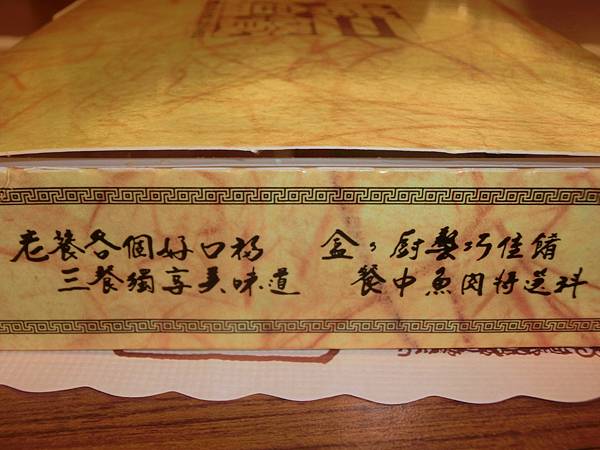 老饕各個好口福
三餐獨享美味道
盒々廚藝巧佳餚
餐中魚肉特選料